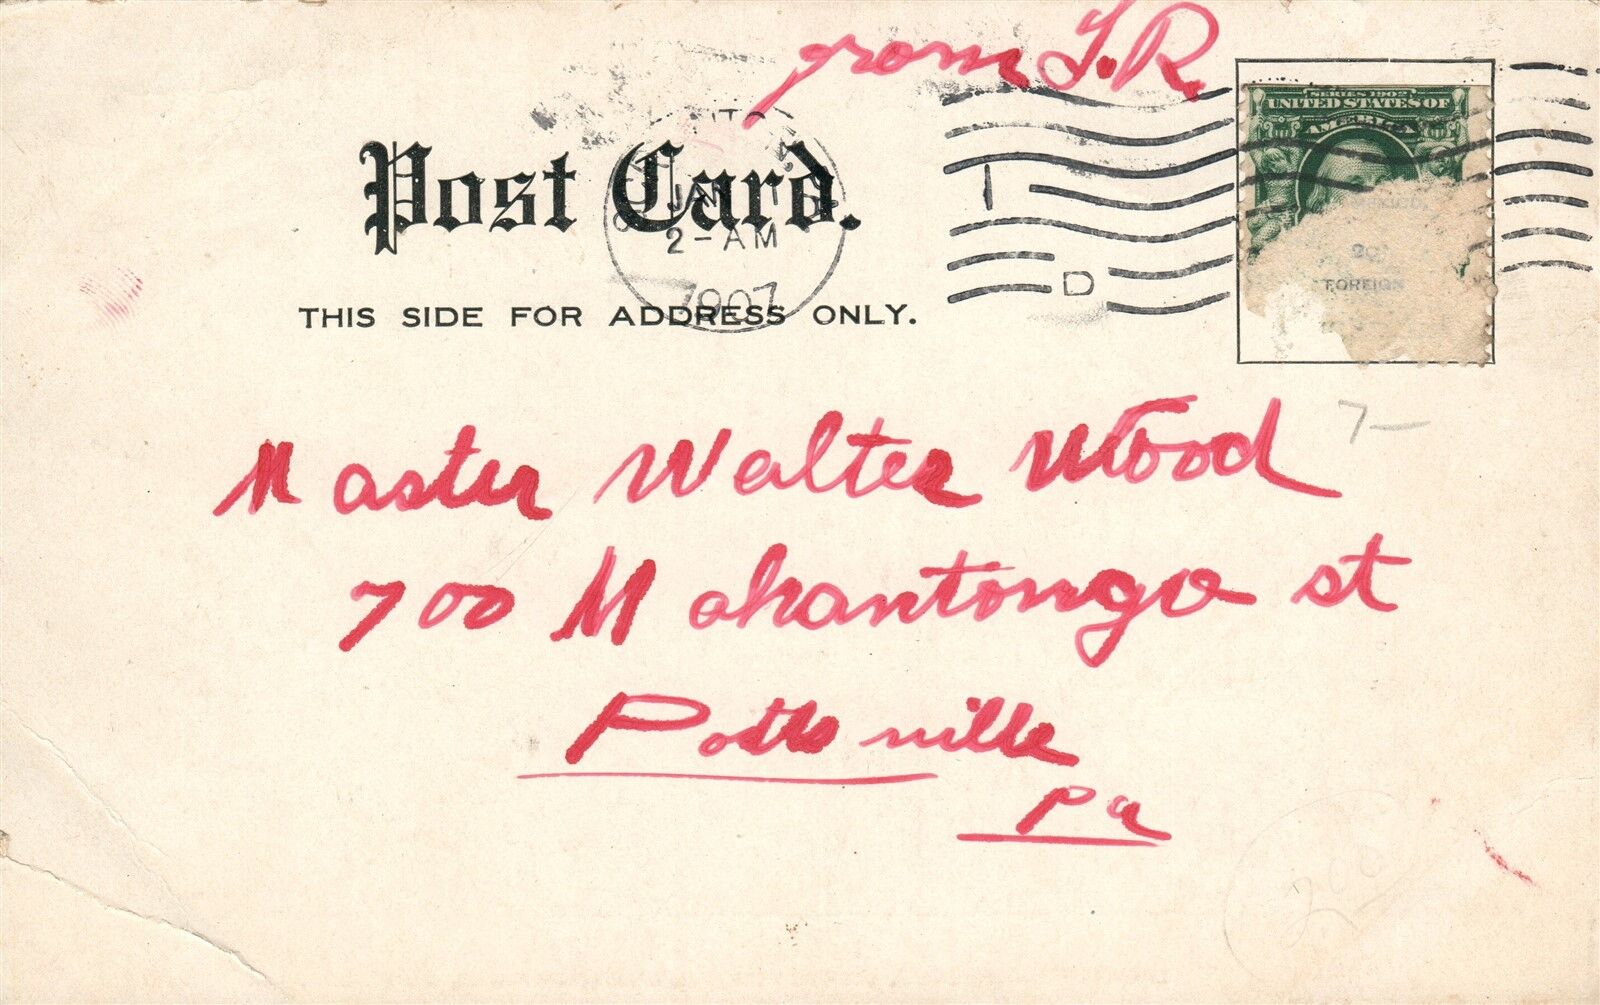 from T.R.
SERIES 1902
UNITED STATES OF
AMERICA
Post Card.
JAN
2-AM
1907
1
D
20
FOREIGN
THIS SIDE FOR ADDRESS ONLY.
7-
Master Walter Wood
700 Mahantongo st
Pottsville
Pa
200